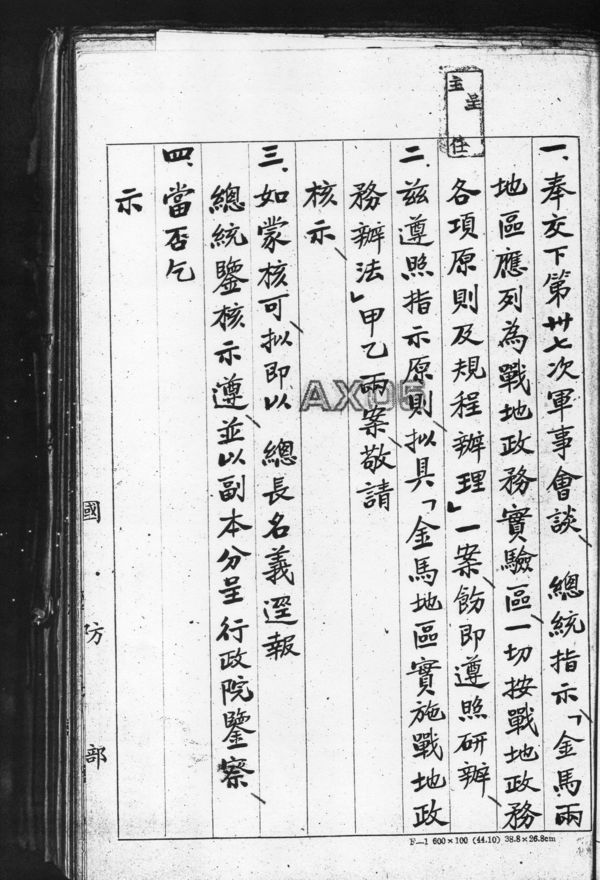 呈
主任
一、奉交下第卅七次軍事會談、總統指示「金馬兩
地區應列為戰地政務實驗區、一切按戰地政務
各項原則及規程辦理」一案、飭即遵照研辦、
二、茲遵照指示原則、拟具「金馬地區實施戰地政
務辦法」甲乙兩案、敬請
核示、
三、如蒙核可、拟即以 總長名義逕報
總統鑒核示遵、並以副本分呈行政院鑒察、
四、當否乞
示
AX05
國防部
F—1 600×100 (44.10) 38.8×26.8cm